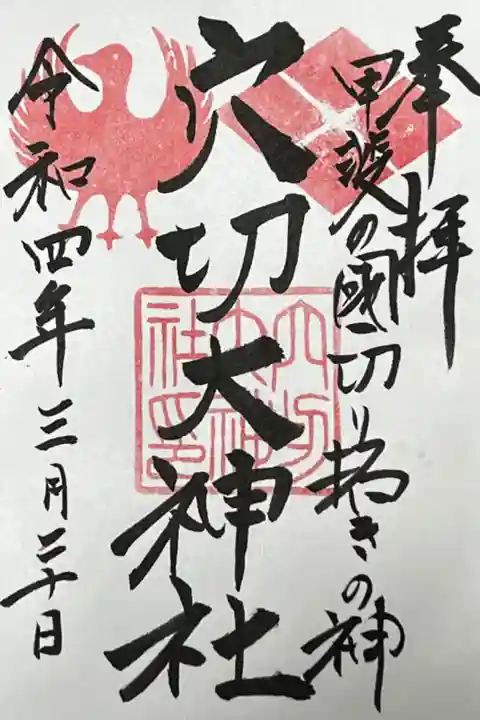 奉拝
甲斐の國切り拓きの神
穴切大神社
穴切大神社印
令和四年三月二十日